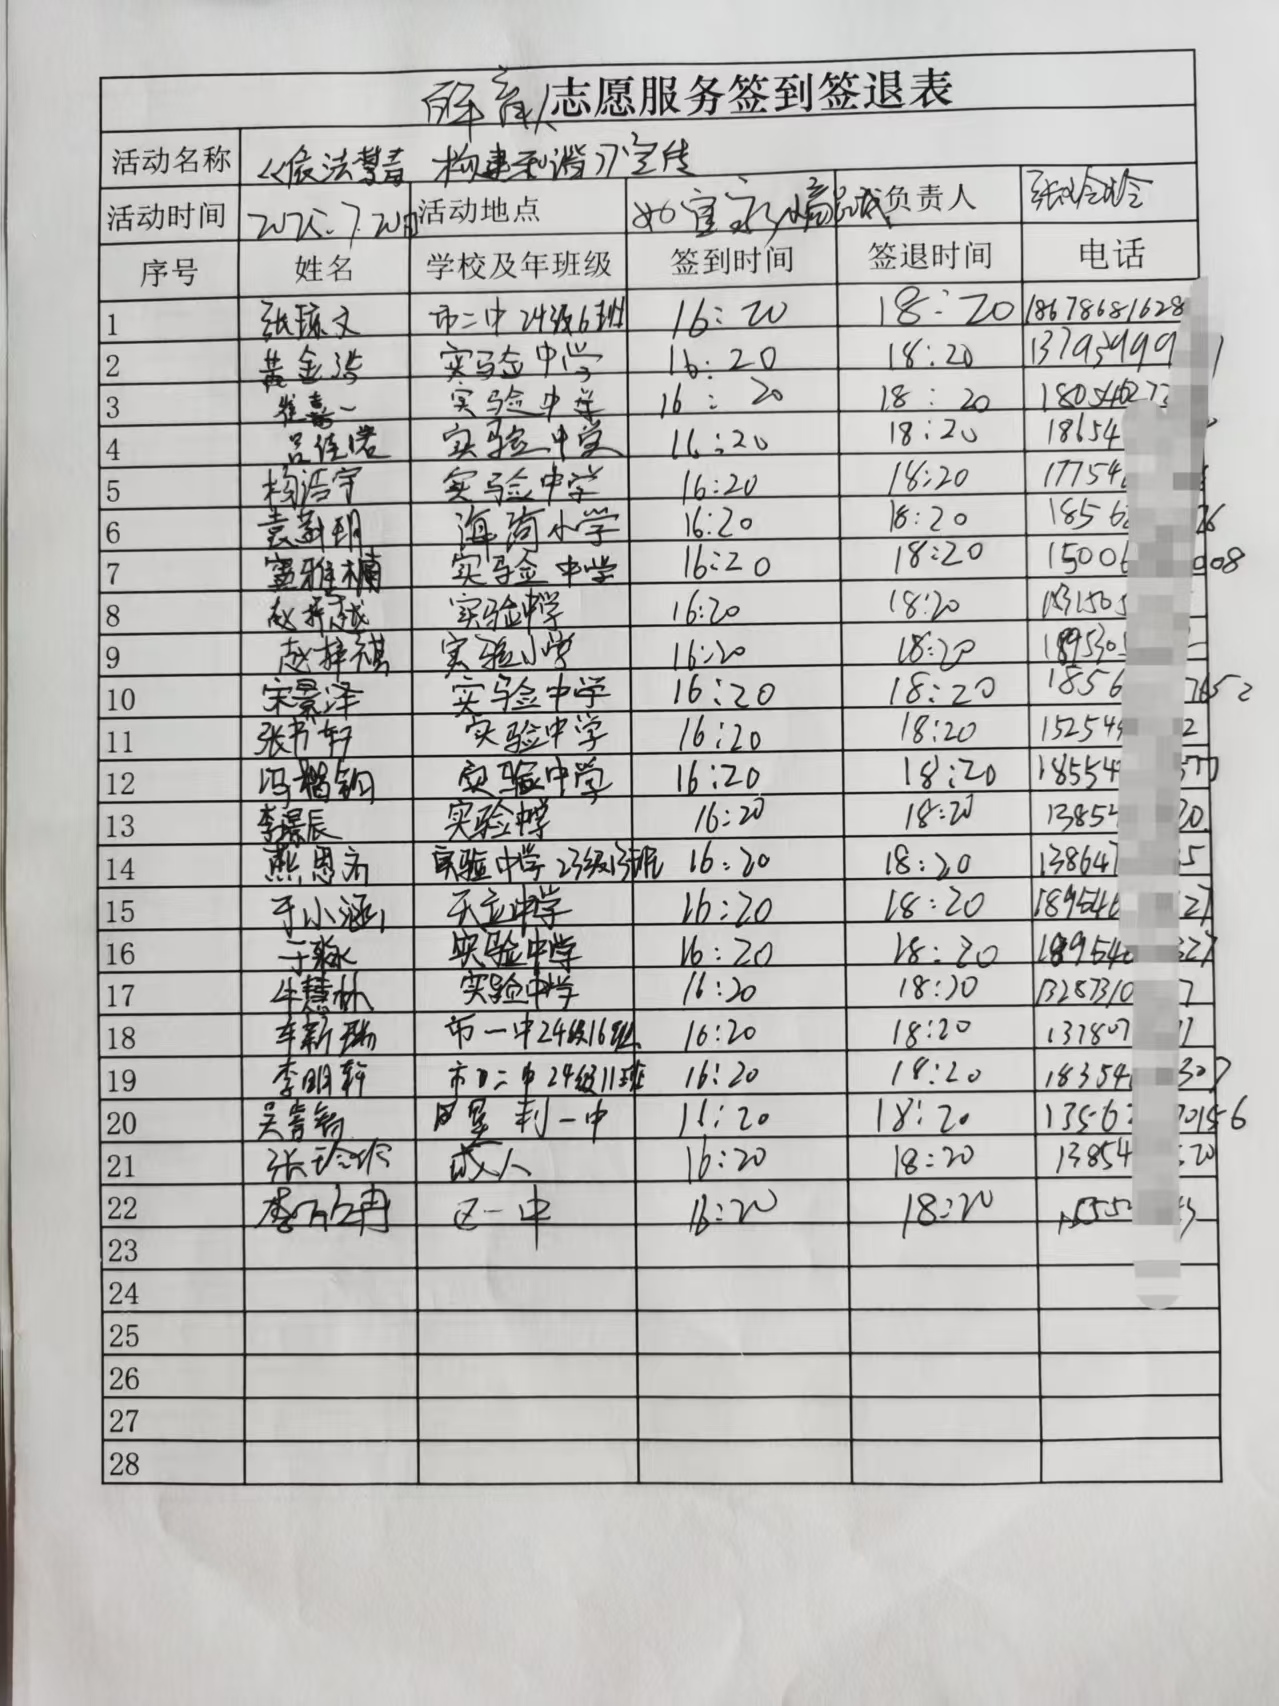 志愿服务签到签退表
活动名称 《依法禁毒 构建和谐》宣传
活动时间 2025.7.20日 活动地点 负责人
序号 姓名 学校及年班级 签到时间 签退时间 电话
1 张琼文 市二中24级6班 16:20 18:20 18678681628
2 黄金 实验中学 16:20 18:20 137939999
3 崔嘉一 实验中学 16:20 18:20 180546273
4 吕佳诺 实验中学 16:20 18:20 18654
5 杨浩宇 实验中学 16:20 18:20 17754
6 袁 玥 海河小学 16:20 18:20 1856 26
7 窦雅楠 实验中学 16:20 18:20 1500 008
8 赵梓越 实验中学 16:20 18:20
9 赵梓祺 实验小学 16:20 18:20 189530
10 宋景泽 实验中学 16:20 18:20 1856 7652
11 张书轩 实验中学 16:20 18:20 15254 2
12 冯楷 实验中学 16:20 18:20 18554
13 李景辰 实验中学 16:20 18:20 1385 20
14 燕思齐 实验中学23级13班 16:20 18:20 138647 5
15 于小涵 天立中学 16:20 18:20 189546 27
16 于 实验中学 16:20 18:20 189546 327
17 牛慧林 实验中学 16:20 18:20 13287310 7
18 车新瑞 市一中24级16班 16:20 18:20 137807 1
19 李明轩 市二中24级11班 16:20 18:20 18354 307
20 吴 垦利一中 16:20 18:20 1356 0156
21 张 成人 16:20 18:20 13854 20
22 李 冉 区一中 16:20 18:20
23
24
25
26
27
28